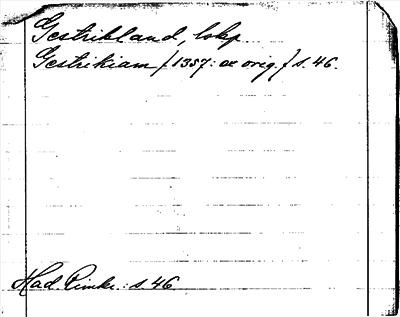 Gestrikland, lokp.
Gestrikiam [1357: ex orig.] s. 46.
Had. Pincks.: s. 46